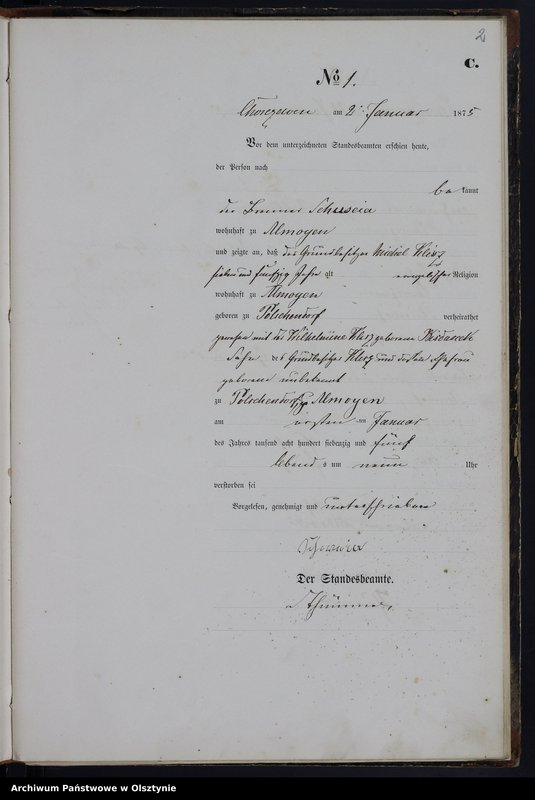 2
C.
No 1.
am 2. Januar 1875
Vor dem unterzeichneten Standesbeamten erschien heute,
der Person nach
bekannt
der
wohnhaft zu Almoyen
und zeigte an, daß der Grundbesitzer Michel Klesz
sieben und fünfzig Jahr alt evangelischer Religion
wohnhaft zu Almoyen
geboren zu Pölschendorf verheirathet
gewesen mit der Wilhelmine Klesz geborene
Sohn des Grundbesitzer Klesz und dessen Ehefrau
geborene unbekannt
zu Pölschendorf, zu Almoyen
am ersten ten Januar
des Jahres tausend acht hundert siebenzig und fünf
Abends um neun Uhr
verstorben sei
Vorgelesen, genehmigt und unterschrieben
Der Standesbeamte.
Archiwum Państwowe w Olsztynie